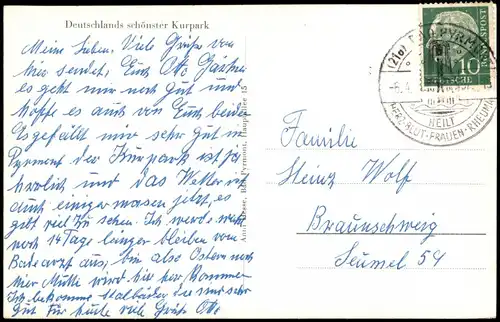 Deutschlands schönster Kurpark
Meine Lieben, Viele Grüße von
hier sendet, Euch Otto
es geht mir noch gut und
hoffe es auch von Euch beiden
Es gefällt mir sehr gut in
Pyrmont der Kurpark ist ja
herrlich und das Wetter ist
auch einiger jetzt, es
gibt viel zu sehen. Ich werde wohl
noch 14 Tage länger bleiben vom
Badearzt aus, bin also Ostern noch
hier Mutti wird hier her kommen
Ich bekomme Stalbäder die sind sehr
gut Für heute viele Grüße Otto
Bad Pyrmont, Hauptallee 15
Familie
Heinz Wolf
Braunschweig
54
(21a) BAD PYRMONT
-6.4.
HEILT
HERZ-BLUT-FRAUEN-RHEUMA
DEUTSCHE
BUNDESPOST
10